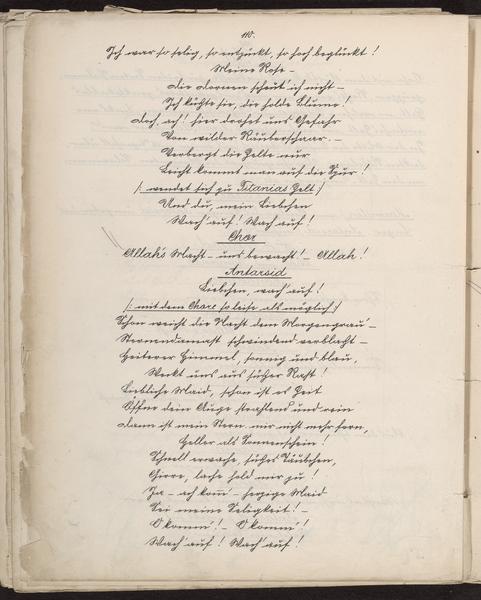 110.
Ich war so selig, so entzückt, so hoch beglückt!
Meine Rose –
Die Dornen scheut' ich nicht –
Ich küßte sie, die holde Blume!
Doch ach! hier drohet uns Gefahr
Von wilder Räuberschaar. –
Verbergt die Zelte nur
Leicht kommt man auf die Spur!
/: wendet sich zu Titanias Zelt :/
Und du, mein Liebchen
Wach' auf! Wach' auf!
Chor
Allah's Macht – uns bewacht! – Allah!
Antarsid
Liebchen, wach' auf!
/: mit dem Chore so leise als möglich :/
Schon weicht die Nacht dem Morgengrau' –
Sternendamast schwindend verblaßt –
Heiterer Himmel, sonnig und blau,
Weckt uns aus süßer Rast!
Liebliche Maid, schon ist es Zeit
Öffne dein Auge strahlend und rein
Dann ist mein Stern mir nicht mehr fern,
Heller als Sonnenschein!
Schnell erwache, süßes Täubchen,
Girre, lache hold mir zu!
Ja – ach kom̄ – herzige Maid
Sei meine Seligkeit! –
O kom̄'! – O kom̄'!
Wach' auf! Wach' auf!